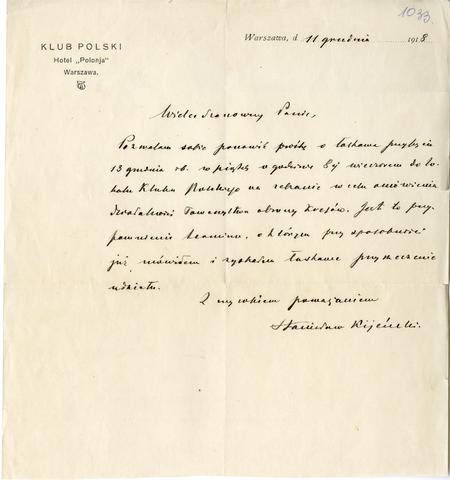 1033.
KLUB POLSKI
Hotel „Polonja"
Warszawa.
Warszawa, d. 11 grudnia 1918
Wielce Szanowny Panie,
Pozwalam sobie ponowić prośbę o łaskawe przybycie
13 grudnia rb. w piątek o godzinie 8ej wieczorem do lo-
kalu Klubu Polskiego na zebranie w celu omówienia
działalności Towarzystwa obrony kresów. Jest to przy-
pomnienie terminu, o którym przy sposobności
już mówiłem i zyskałem łaskawe przyrzeczenie
udziału.
Z wysokiem poważaniem
Stanisław Kijeński.